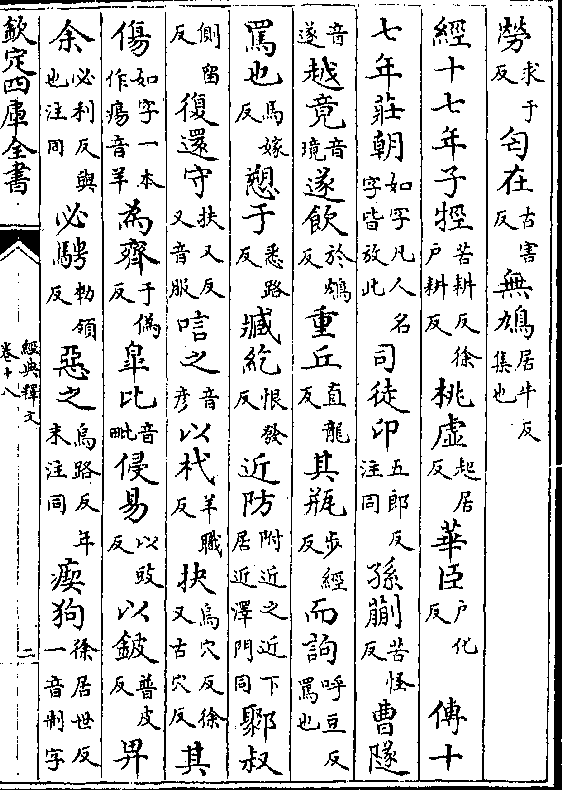 勞求于反匄在古害反無鳩居牛反集也
經十七年子牼苦耕反徐户耕反桃虚起居反華臣户化反傳十
七年莊朝如字凡人名字皆放此司徒卬五郎反注同孫蒯苦怪反曹隧
音遂越竟音境遂飲於鴆反重丘直龍反其瓶步經反而訽呼豆反罵也
罵也馬嫁反愬于悉路反臧紇恨發反近防附近之近下居近澤門同郰叔
側留反復還守扶又反又音服唁之音彥以杙羊職反抉烏穴反徐又古穴反其
傷如字一本作瘍音羊為齊于偽反臯比音毗侵易以豉反以鈹普皮反畀
余必利反與也注同必騁勑領反惡之烏路反年末注同瘈狗徐居世反一音制字
欽定四庫全書
經典釋文
卷十八
二